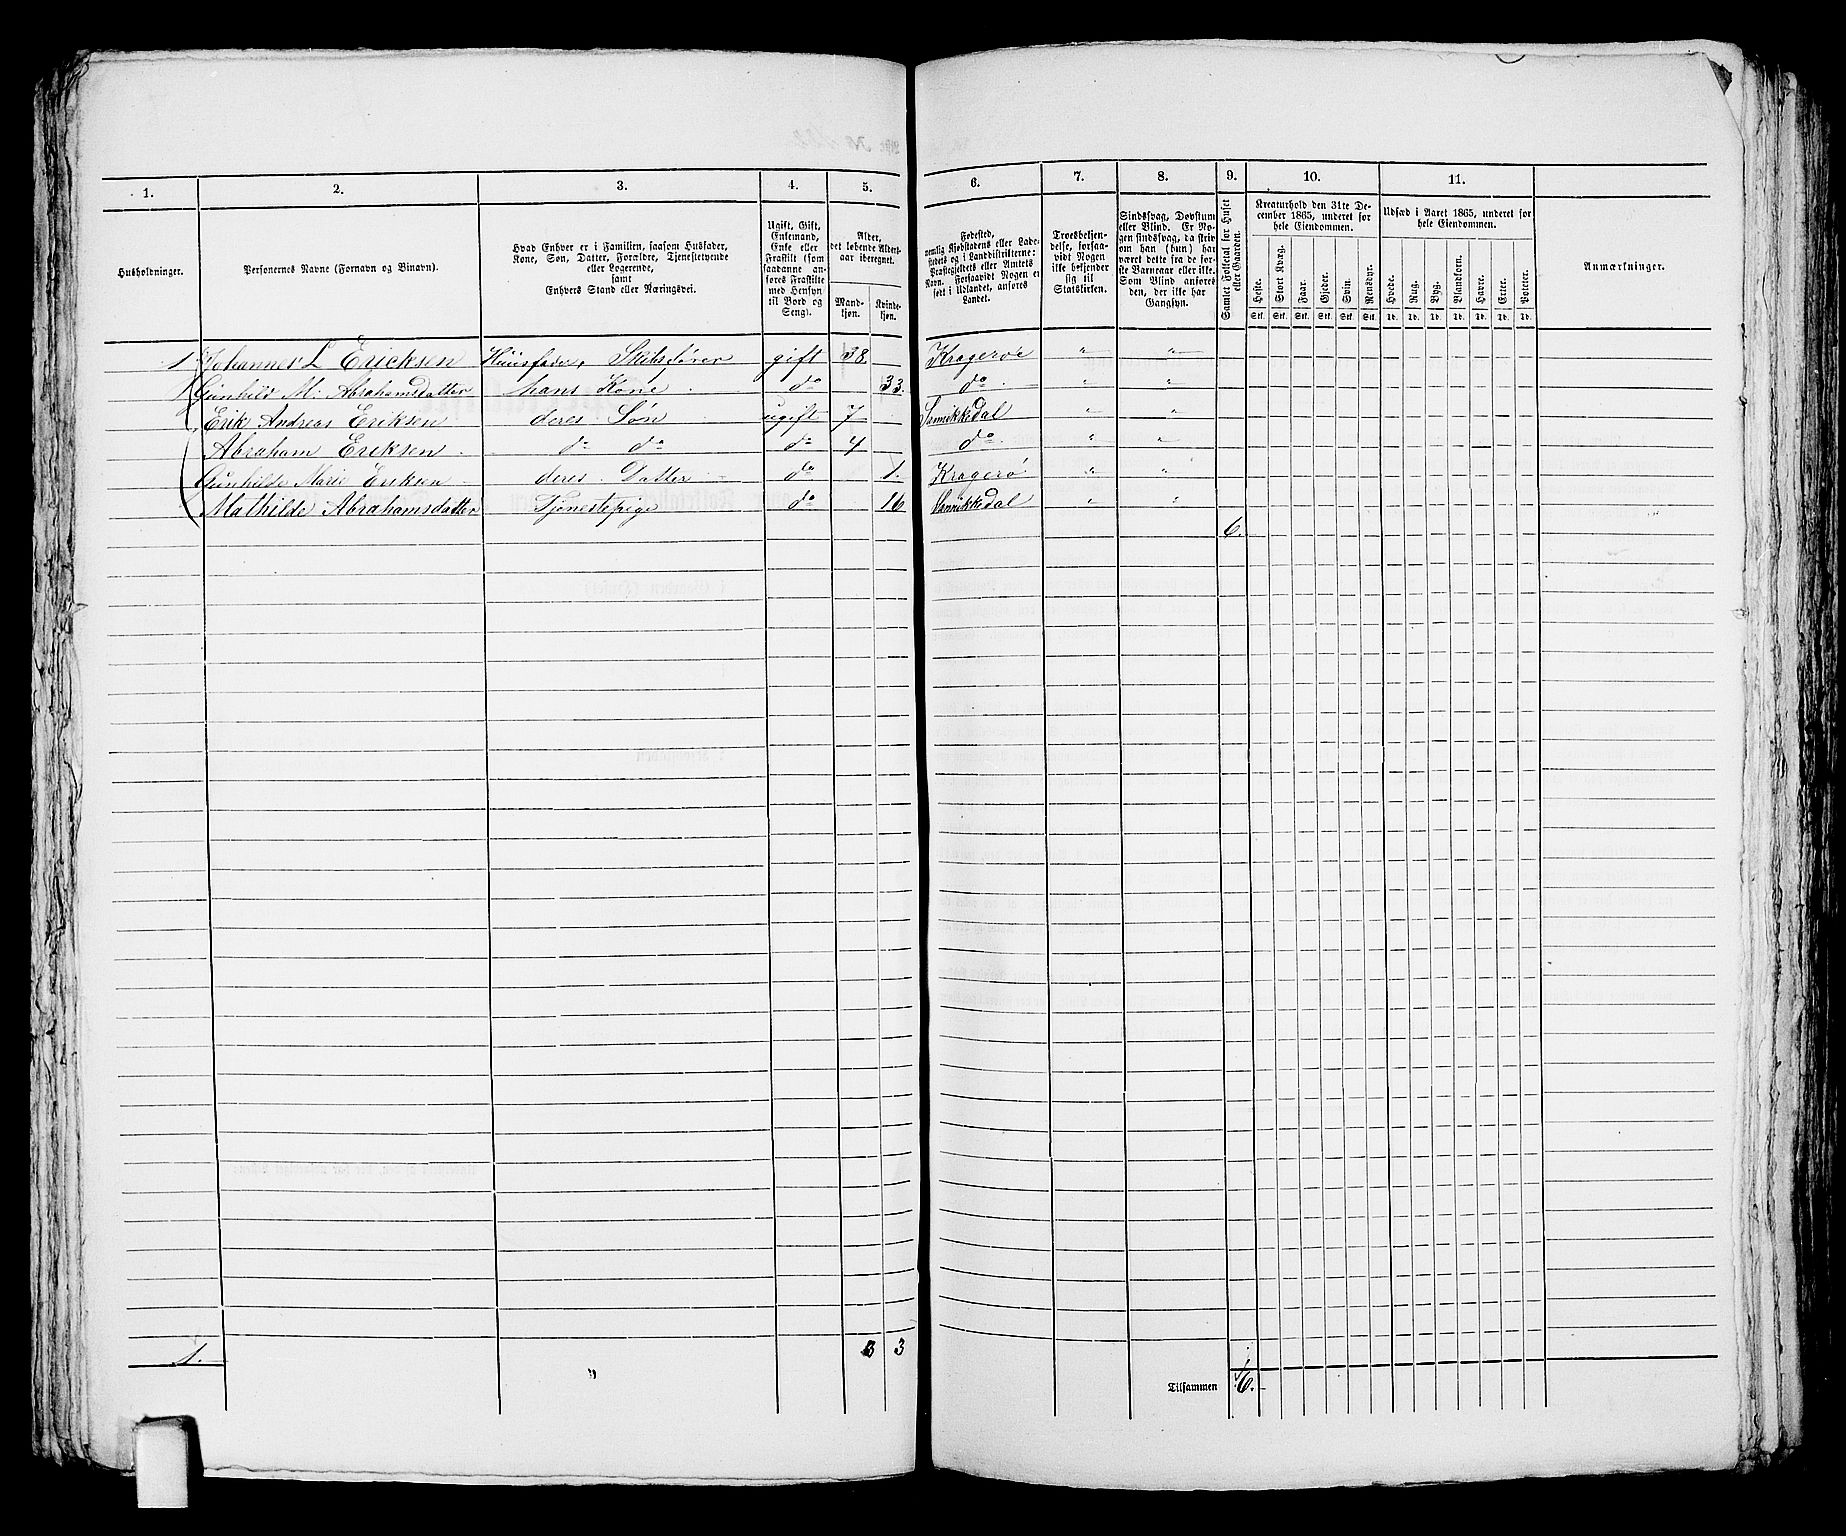 1. 2. 3. 4. 5. 6. 7. 8. 9. 10. 11.
Husholdninger.
Personernes Navne (Fornavn og Binavn).
Hvad Enhver er i Familien, saasom Husfader,
Kone, Søn, Datter, Forældre, Tjenestetyende
eller Logerende,
samt
Enhvers Stand eller Næringsvei.
Ugift, Gift,
Enkemand,
Enke eller
Fraskilt (som
saadanne an-
føres Fraskilte
med Hensyn
til Bord og
Seng).
Alder,
det løbende Alders-
aar iberegnet.
Mand-
kjøn.
Kvinde-
kjøn.
Fødested,
nemlig Kjøbstadens eller Lade-
stedets og i Landdistrikterne:
Præstegjeldets eller Amtets
Navn. Forsaavidt Nogen er
født i Udlandet, anføres
Landet.
Troesbekjen-
delse, forsaa-
vidt Nogen
ikke bekjender
sig til
Statskirken.
Sindssvag, Døvstum
eller Blind. Er No-
gen sindssvag, da skriv
om han (hun) har
været dette fra de før-
ste Barneaar eller ikke.
Som Blind anføres
den, der ikke har
Gangsyn.
Samlet Folketal for Huset
eller Gaarden.
Kreaturhold den 31te De-
cember 1865, underet for
hele Eiendommen.
Heste. Stort Kvæg. Faar. Gjeder. Svin. Rensdyr.
Stk. Stk. Stk. Stk. Stk. Stk.
Udsæd i Aaret 1865, underet for
hele Eiendommen.
Hvede. Rug. Byg. Blandkorn. Havre. Erter. Poteter.
Td. Td. Td. Td. Td. Td. Td.
Anmærkninger.
1 Johannes L Ericksen Huusfader, Skibsfører gift 38. Kragerøe " "
Gunhild M: Abrahamsdatter hans Kone do 33. do " "
Erik Andreas Eriksen deres Søn ugift 7 Sannikkedal " "
Abraham Eriksen do do do 4 do " "
Gunhilde Marie Eriksen deres Datter do 1. Kragerø " "
Mathilde Abrahamsdatter Tjenestepige do 16 Sannikkedal " "
6.
1. 3 3
Tilsammen 6.